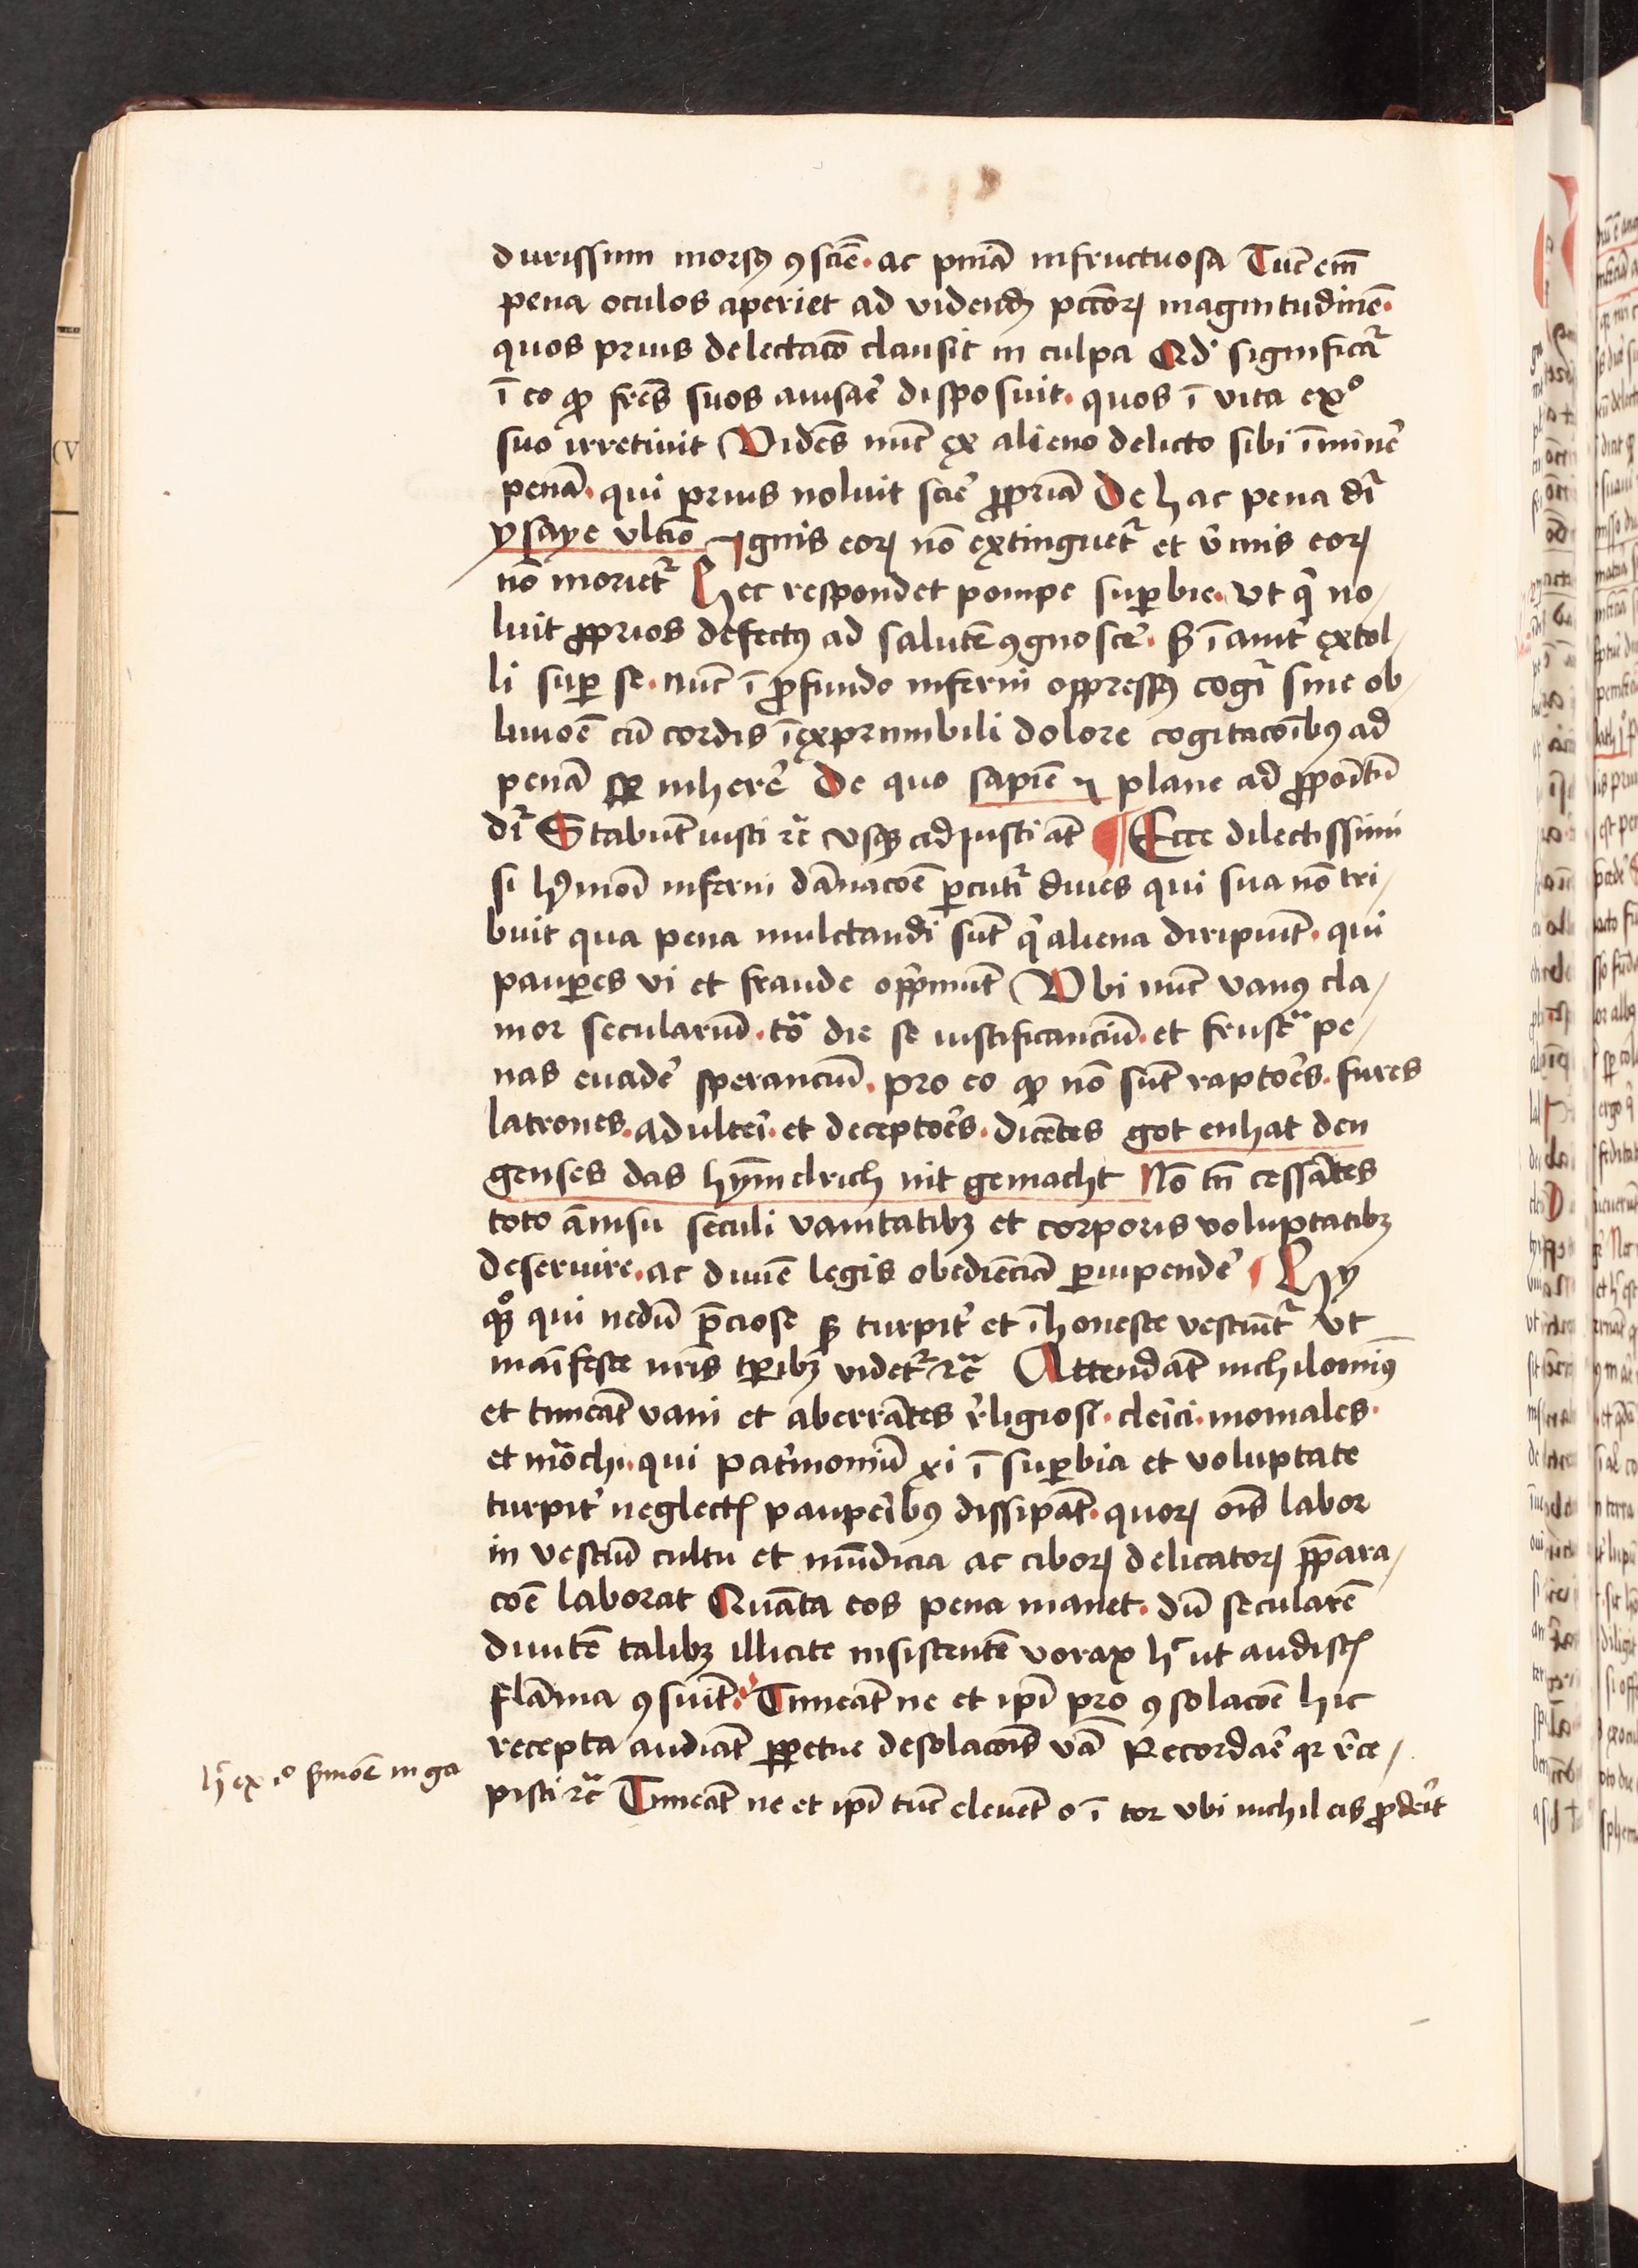 durissim morsꝰ ꝯsciē · ac pniā infructuosa Tūc em̄
pena oculos aperiet ad vidend pctōrꝝ magnitudinē ·
quos prius delectacō clausit in culpa Qd' significat᷑
ī eo ꝙ frēs suos auisar̄e disposuit · quos ī vita exº
suo irretiuit Vidēs nūc ex alieno delicto sibi īminer̄
penā · qui prius noluit scir̄e ꝓpriā De hac pena dr̄
ysaye vltīo Ignis eorꝝ nō extinguet᷑ et v̄mis eorꝝ
nō moriet᷑ Hec respondet pompe suꝑbie · Vt q' no/
luit ꝓprios defectꝰ ad salutē ꝯgnoscer̄ · sꝫ īanit' extol/
li suꝑ se · nūc ī ꝓfundo inferni oppressꝰ cogit᷑ sine ob/
liuiōe cū cordis īexprimibili dolore cogitacōibꝰ ad
penā sꝑ inherer̄ De quo sapiē v plane ad ꝓpōitū
dr̄ Stabūt iusti rc̄ vsqꝫ ad Iusti āt ¶ Ecce dilectissimi
si hꝰmōi inferni dānacōe ꝑcutit᷑ diues qui sua nō tri/
buit qua pena mulctandi sūt q' aliena diripiūt · qui
pauꝑes vi et fraude opp'mūt Vbi nūc vanꝰ cla/
mor seculariū · tō die se iustificanciū · et frustᵃ pe/
nas euader̄ speranciū · pro eo ꝙ nō sūt raptor̄es · fures
latrones · adulter̄i · et deceptor̄es · dicētes got enhat den
genses das hȳmelrich nit gemacht Nō tn̄ cessātes
toto ānisu seculi vanitatibꝫ et corporis voluptatibꝫ
deseruire · ac diuīe legis obediēciā ꝑuipender̄ Hy
qꝫº qui nedū p̄ciose sꝫ turpit' et īhoneste vestiūt᷑ Vt
māifeste nr̄is tꝑibꝫ videt᷑ rc̄ Attendāt nichilomiꝰ
et timeāt vani et aberrātes r̄ligiosi · cler̄ici · moniales ·
et mōachi · qui pat'moniū xi ī suꝑbia et voluptate
turpit' neglectꝭ pauper̄ibꝰ dissipāt · quorꝝ oīs labor
in vestiū cultu et mūdicia ac ciborꝝ delicatorꝝ pp̄ara/
cōe laborat Quāta eos pena manet · dū secularē
diuitē talibꝫ illicite insistentē vorax hᷓ ut audistꝭ
flāma ꝯsuīt · Timeāt ne et ip̄i pro ꝯsolacōe hic
recepta audiāt ꝑpetue desolacōis vā Recordar̄e qr r̄ce/
pisti rc̄ Timeāt ne et ip̄i tūc eleuēt o ī tor vbi nichil eis ꝓder̄it
hᷓ ex iº s̄mōe in ga